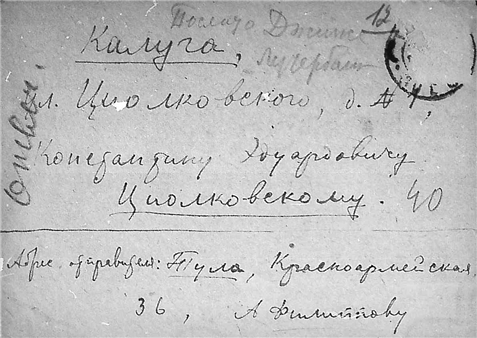 12
Калуга,
Ответ.
ул. Циолковского, д. № 1,
Константину Эдуардовичу
Циолковскому. 40
Адрес отправителя: Тула, Красноармейская
36, А Филиппову